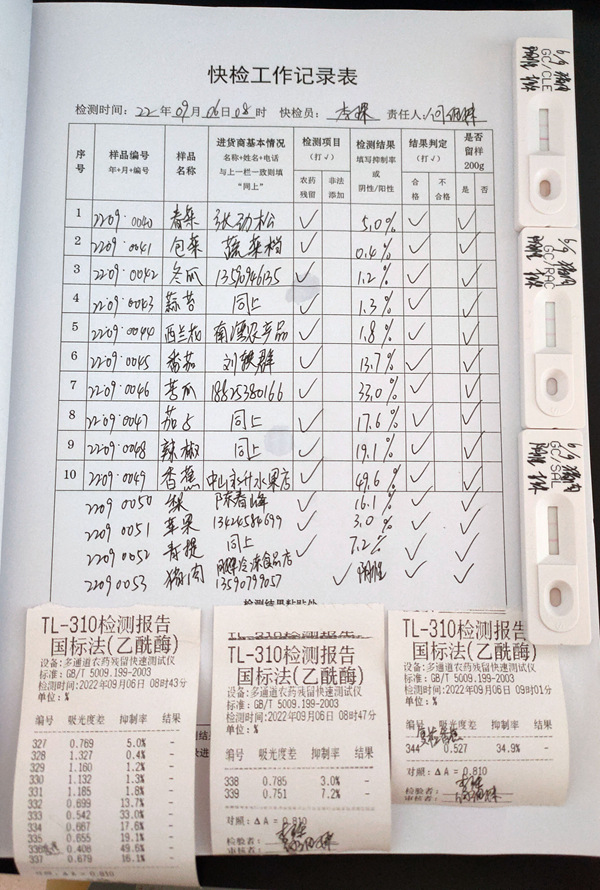 快检工作记录表
检测时间：22年09月06日08时 快检员： 责任人：
序号 样品编号 年+月+编号 样品名称 进货商基本情况 名称+姓名+电话 与上一栏一致则填“同上” 检测项目（打√） 农药残留 非法添加 检测结果 填写抑制率或阴性/阳性 结果判定（打√） 合格 不合格 是否留样200g 是 否
1 2209·0040 春菜 张劲松 √ 5.0% √ √
2 2209·0041 包菜 蔬菜档 √ 0.4% √ √
3 2209·0042 冬瓜 √ 1.2% √ √
4 2209·0043 蒜苔 同上 √ 1.3% √ √
5 2209·0044 西兰花 农产品 √ 1.8% √ √
6 2209·0045 番茄 刘轶群 √ 13.7% √ √
7 2209·0046 苦瓜 18825380166 √ 33.0% √ √
8 2209·0047 茄子 同上 √ 17.6% √ √
9 2209·0048 辣椒 同上 √ 19.1% √ √
10 2209·0049 香蕉 中山永升水果店 √ 49.6% √ √
2209 0050 陈春峰 √ 16.1% √ √
2209 0051 苹果 13424584699 √ 3.0% √ √
2209 0052 青提 同上 √ 7.2% √ √
2209 0053 猪肉 冷冻食品店 13590799057 √ 阴性 √ √
检测结果粘贴处
6/9 猪肉
GC/CLE
阴性
6/9 猪肉
GC/RAC
阴性
6/9 猪肉
GC/SAL
阴性
TL-310检测报告
国标法(乙酰酶)
设备:多通道农药残留快速测试仪
标准：GB/T 5009.199-2003
检测时间:2022年09月06日 08时43分
单位：%
编号 吸光度差 抑制率 结果
327 0.769 5.0% -
328 1.327 0.4% -
329 1.160 1.2% -
330 1.132 1.3% -
331 1.185 1.8% -
332 0.699 13.7% -
333 0.542 33.0% -
334 0.667 17.6% -
335 0.655 19.1% -
336 0.408 49.6% -
337 0.679 16.1% -
对照：ΔA = 0.810
TL-310检测报告
TL-310检测报告
国标法(乙酰酶)
设备:多通道农药残留快速测试仪
标准：GB/T 5009.199-2003
检测时间:2022年09月06日 08时47分
单位：%
编号 吸光度差 抑制率 结果
338 0.785 3.0% -
339 0.751 7.2% -
对照：ΔA = 0.810
检验者：
审核者：
TL-310检测报告
国标法(乙酰酶)
设备:多通道农药残留快速测试仪
标准：GB/T 5009.199-2003
检测时间:2022年09月06日 09时01分
单位：%
编号 吸光度差 抑制率 结果
复检香蕉
344 0.527 34.9% -
对照：ΔA = 0.810
检验者：
审核者：